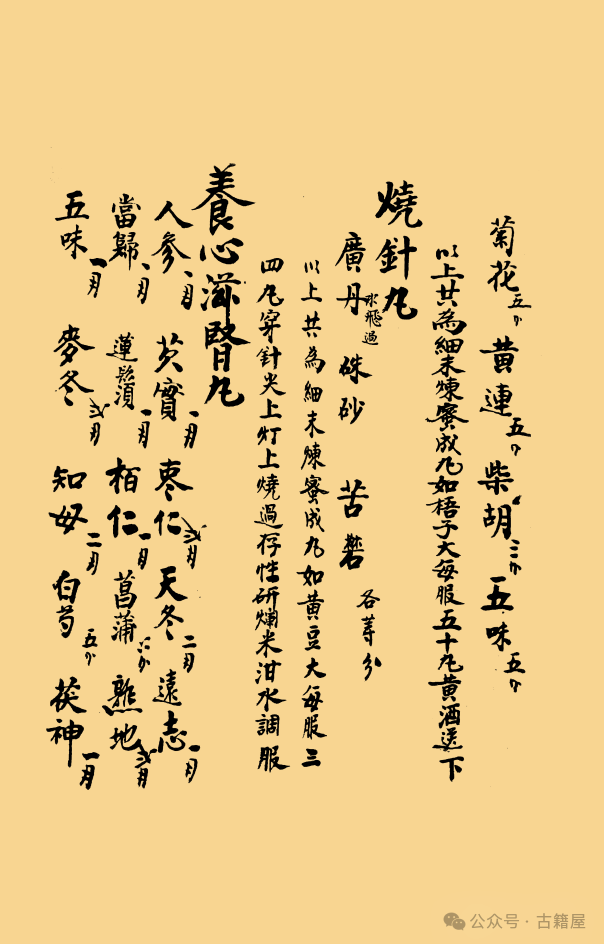 菊花五分 黃連五分 柴胡三分 五味五分
以上共為細末煉蜜成丸如梧子大每服五十丸黃酒送下
燒針丸
廣丹水飛過 硃砂 苦礬 各等分
以上共為細末煉蜜成丸如黃豆大每服三
四丸穿針尖上灯上燒過存性研爛米泔水調服
養心滋腎丸
人參 芡實 棗仁 天冬二 遠志一
當歸 蓮鬚一 栢仁一 菖蒲 熟地
五味一 麥冬 知母二 白芍五分 茯神一
公众号·古籍屋